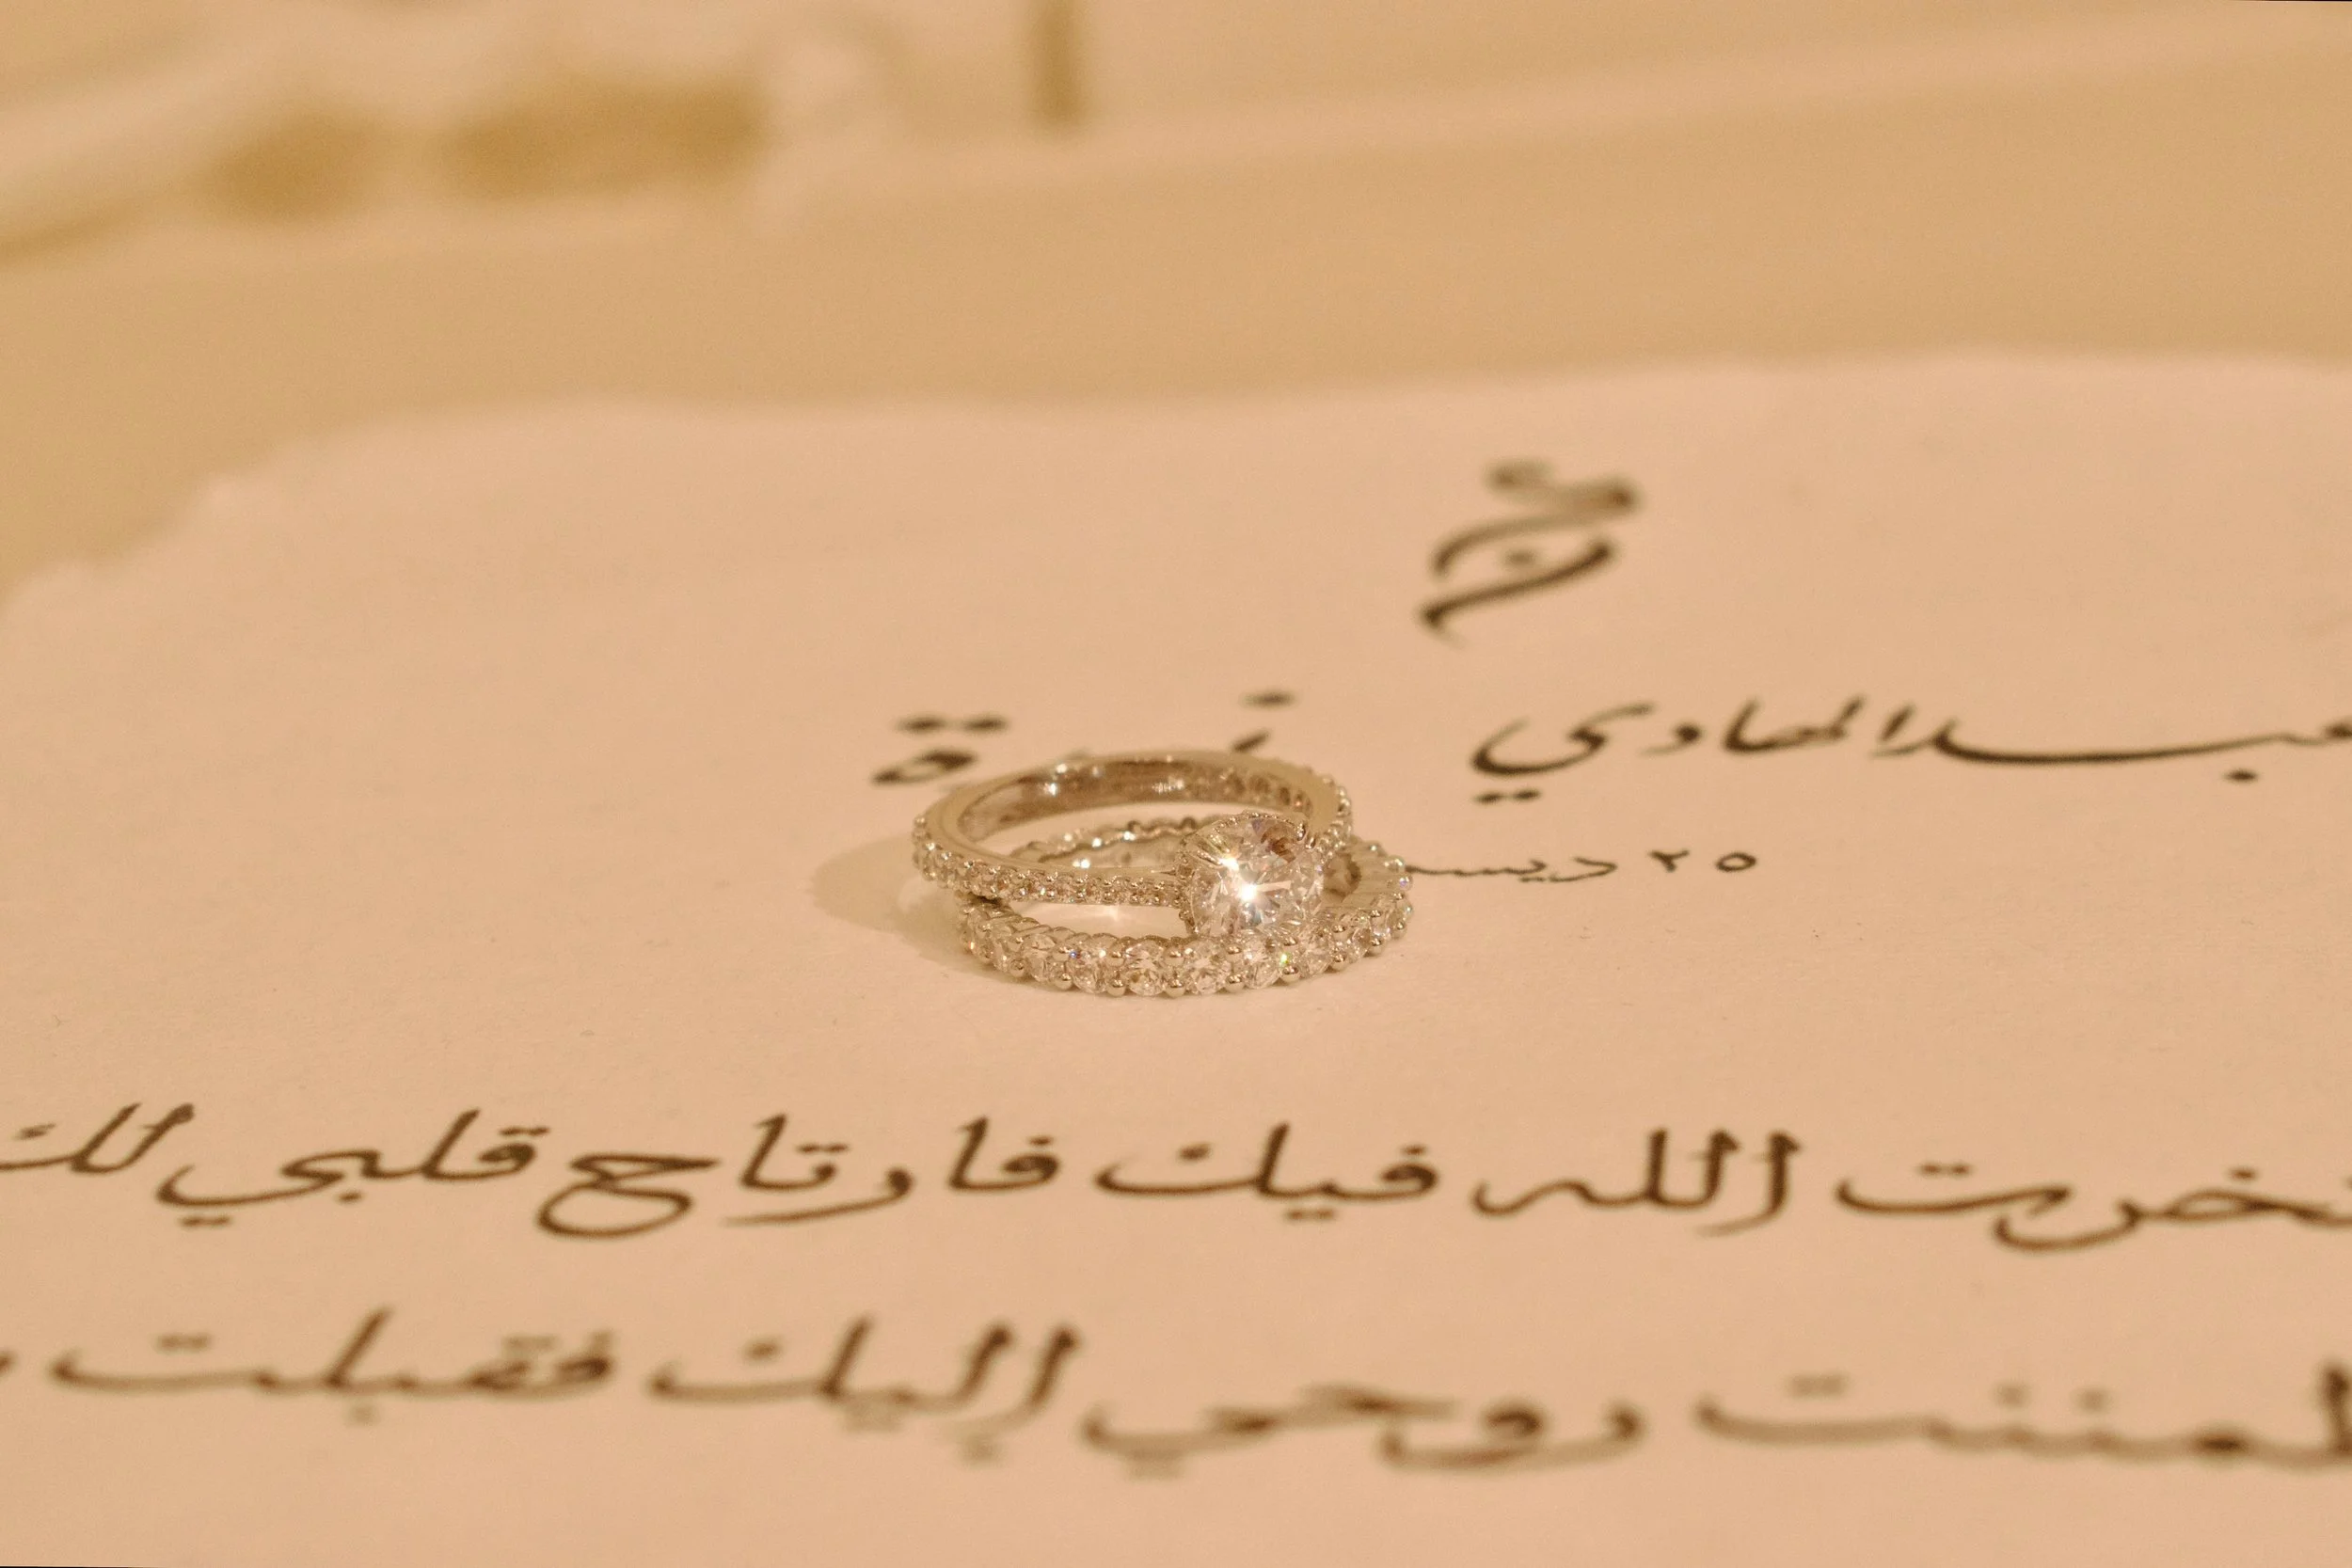 عبدالهادي
٢٥ ديسـ
ـتخرت الله فيك فارتاح قلبي لك
ـطمننت روحي إليك فقبلت